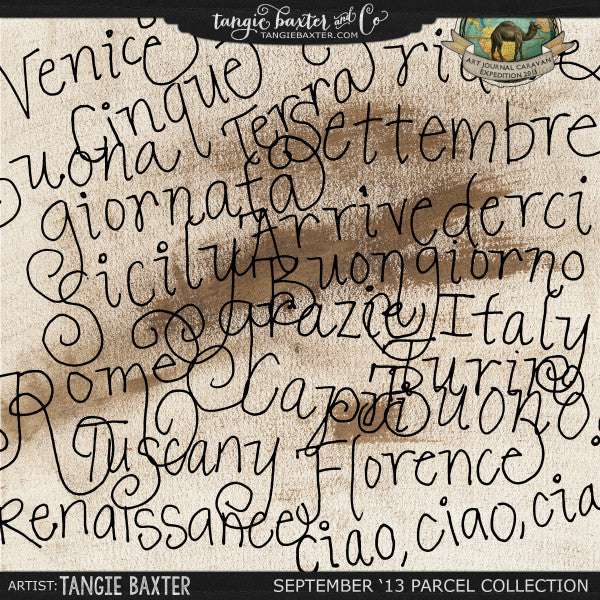 tangie baxter and Co
TANGIEBAXTER.COM
ART JOURNAL CARAVAN
EXPEDITION 2013
Venice
Cinque
Terra
Buona
giornata
Settembre
Arrivederci
Buongiorno
grazie
Italy
Turin
Rome
Capri
Buono
Tuscany
Florence
Renaissance
ciao, ciao, cia
ARTIST: TANGIE BAXTER
SEPTEMBER '13 PARCEL COLLECTION